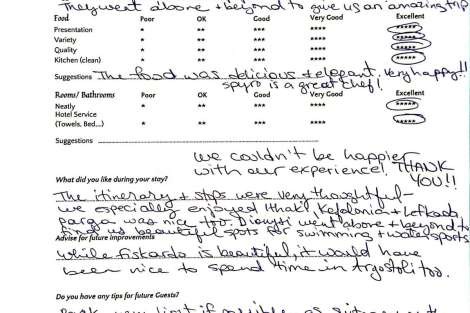 They went above + beyond to give us an amazing trip
Food Poor OK Good Very Good Excellent
Presentation * ** *** **** *****
Variety * ** *** **** *****
Quality * ** *** **** *****
Kitchen (clean) * ** *** **** *****
Suggestions The food was delicious + elegant. Very happy!!
Spyro is a great chef!
Rooms/ Bathrooms Poor OK Good Very Good Excellent
Neatly * ** *** **** *****
Hotel Service
(Towels, Bed...) * ** *** **** *****
Suggestions
We couldn't be happier
with our experience! THANK
YOU!!
What did you like during your stay?
The itinerary + stops were very thoughtful-
we especially enjoyed Ithaki, Kefalonia + Lefkada,
parga was nice too. Dionysi went above + beyond to
find us beautiful spots for swimming + watersports
Advise for future improvements
while fiskardo is beautiful, it would have
been nice to spend time in Argostoli too.
Do you have any tips for future Guests?
limit if possible, as